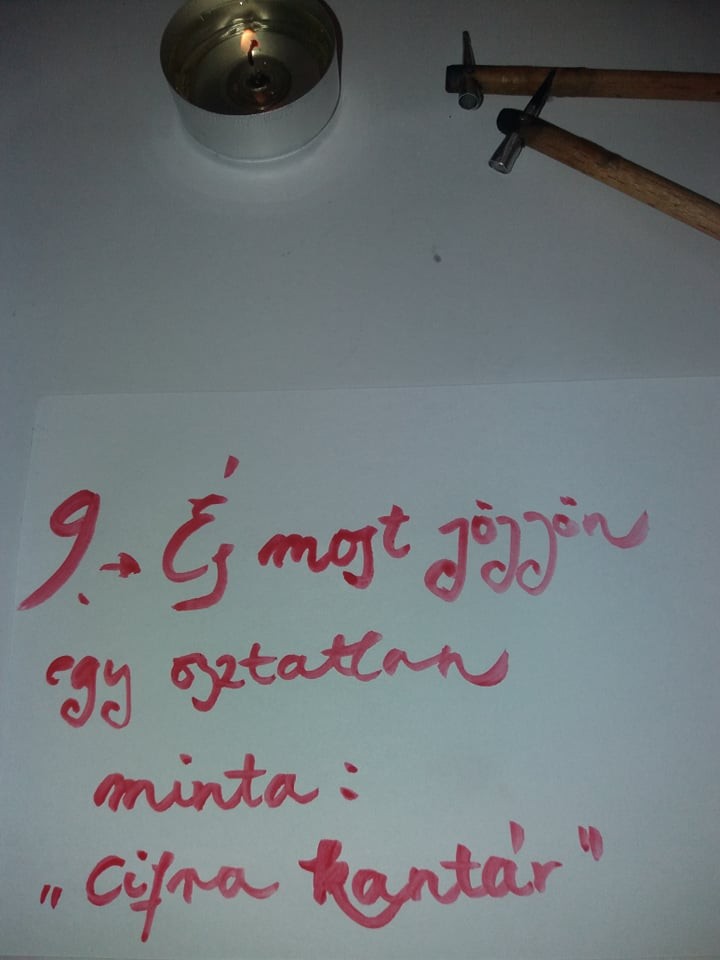 9. → És most jöjjön
egy osztatlan
minta:
„Cifra kantár"